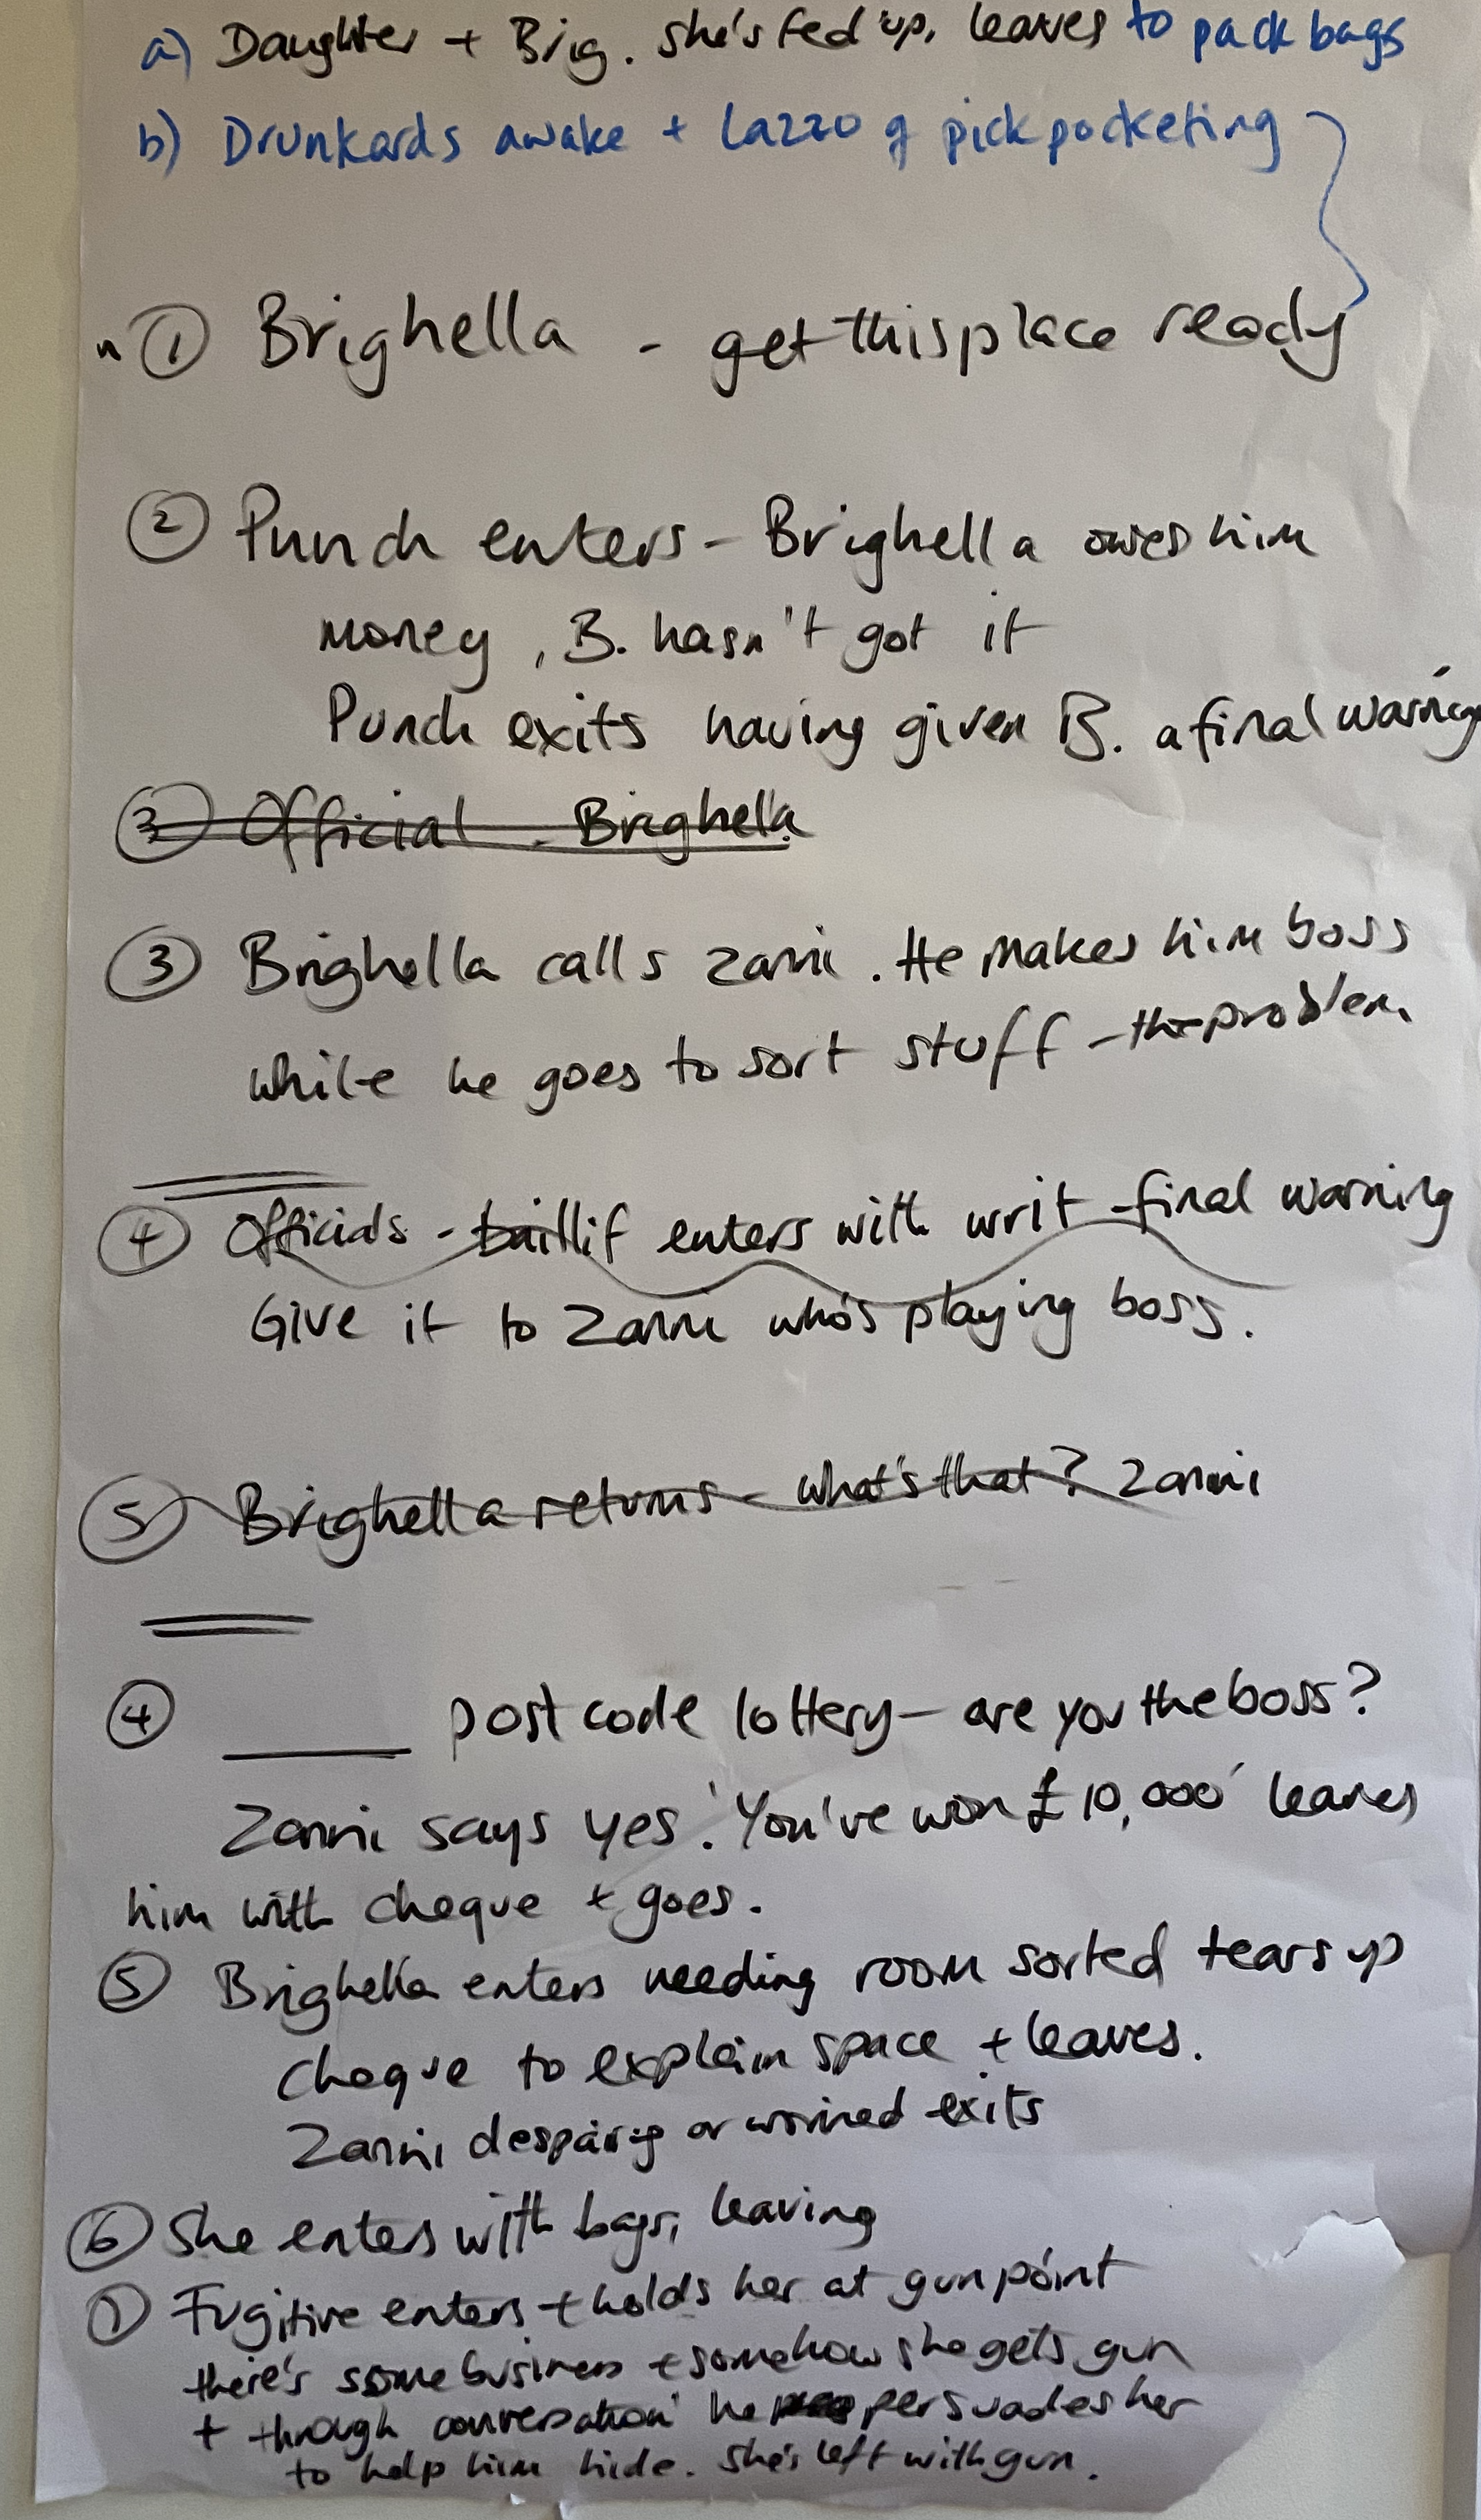 a) Daughter + Brig. she's fed up, leaves to pack bags
b) Drunkards awake + Lazzo of pickpocketing
① Brighella - get this place ready
② Punch enters - Brighella owes him
money, B. hasn't got it
Punch exits having given B. a final warning
③ Official - Brighella
③ Brighella calls Zanni. He makes him boss
while he goes to sort stuff - the problem
④ Officials - baillif enters with writ - final warning
Give it to Zanni who's playing boss.
⑤ Brighella returns - what's that? Zanni
④ ____ post code lottery - are you the boss?
Zanni says yes. 'You've won £10,000' leaves
him with cheque + goes.
⑤ Brighella enters needing room sorted tears up
cheque to explain space + leaves.
Zanni despairing or worried exits
⑥ She enters with bags, leaving
⑦ Fugitive enters + holds her at gun point
there's some business + somehow she gets gun
+ through conversation he persuades her
to help him hide. She's left with gun.